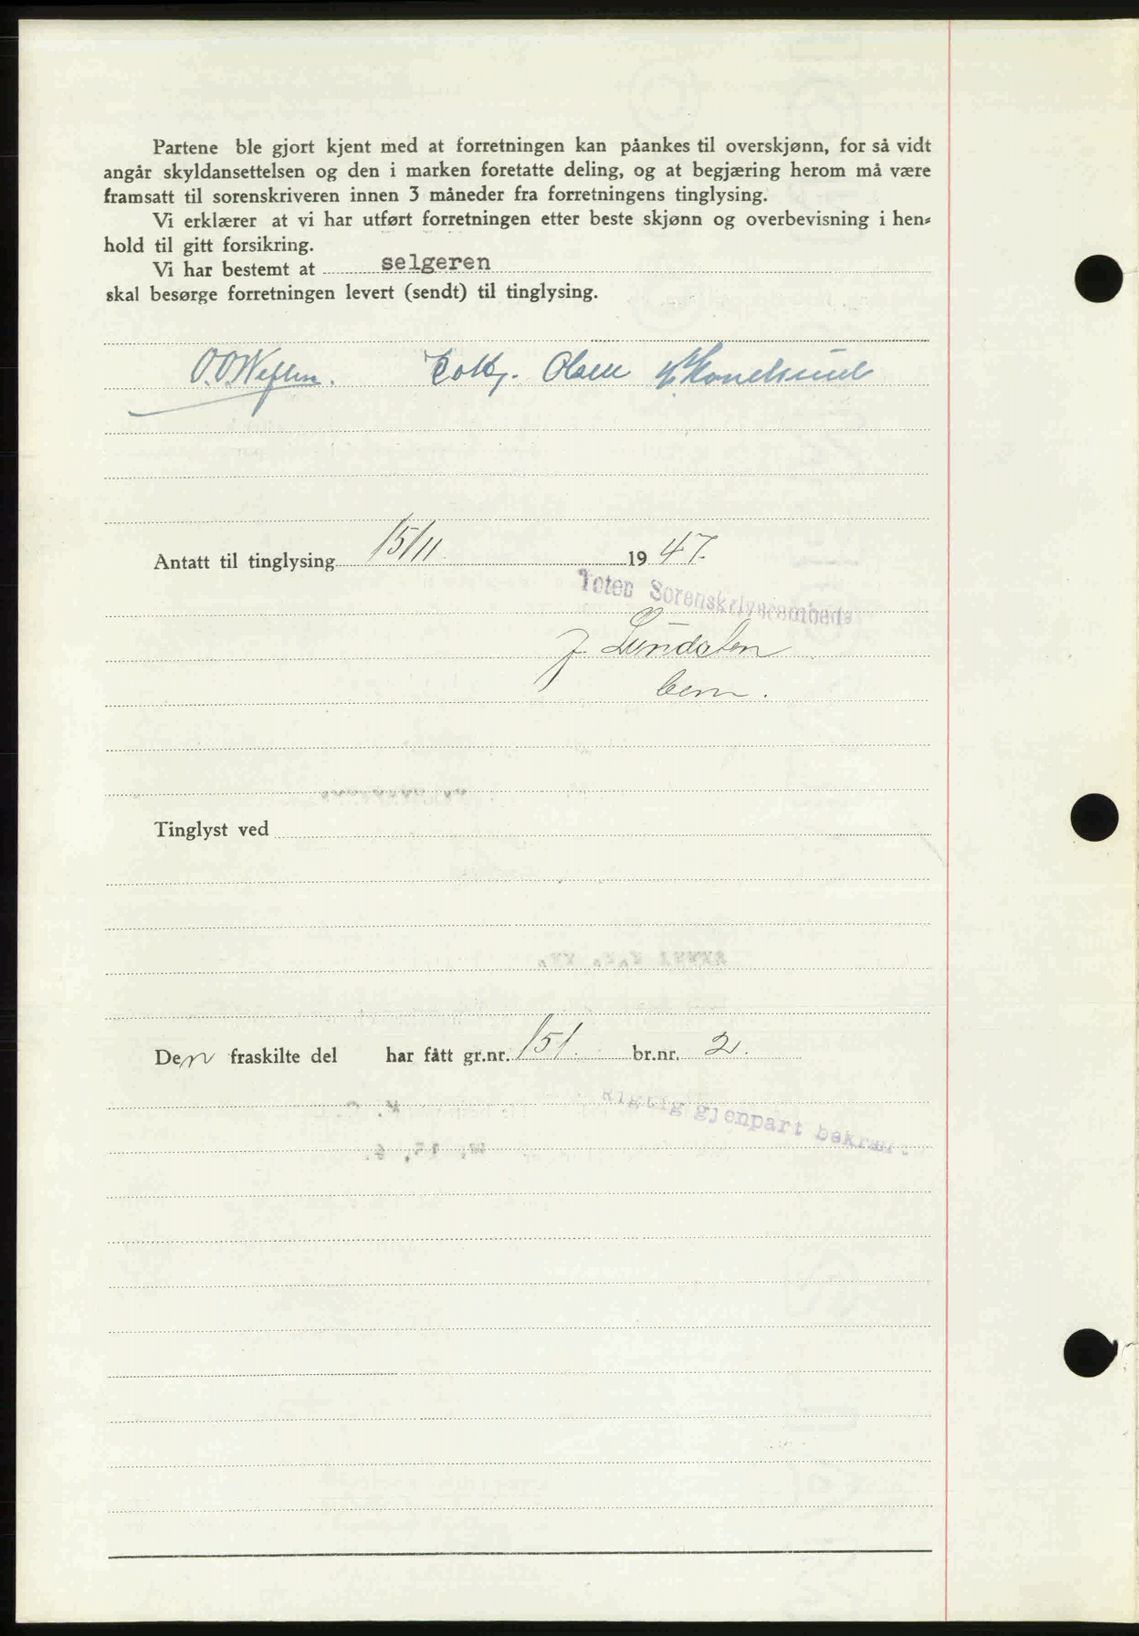 Partene ble gjort kjent med at forretningen kan påankes til overskjønn, for så vidt
angår skyldansettelsen og den i marken foretatte deling, og at begjæring herom må være
framsatt til sorenskriveren innen 3 måneder fra forretningens tinglysing.
Vi erklærer at vi har utført forretningen etter beste skjønn og overbevisning i hen-
hold til gitt forsikring.
Vi har bestemt at selgeren
skal besørge forretningen levert (sendt) til tinglysing.
Olsen
Antatt til tinglysing 15/11 1947.
Toten Sorenskriverembede
J. Lundsten
Tinglyst ved
Den fraskilte del har fått gr.nr. 151. br.nr. 2.
Rigtig gjenpart bekræf.